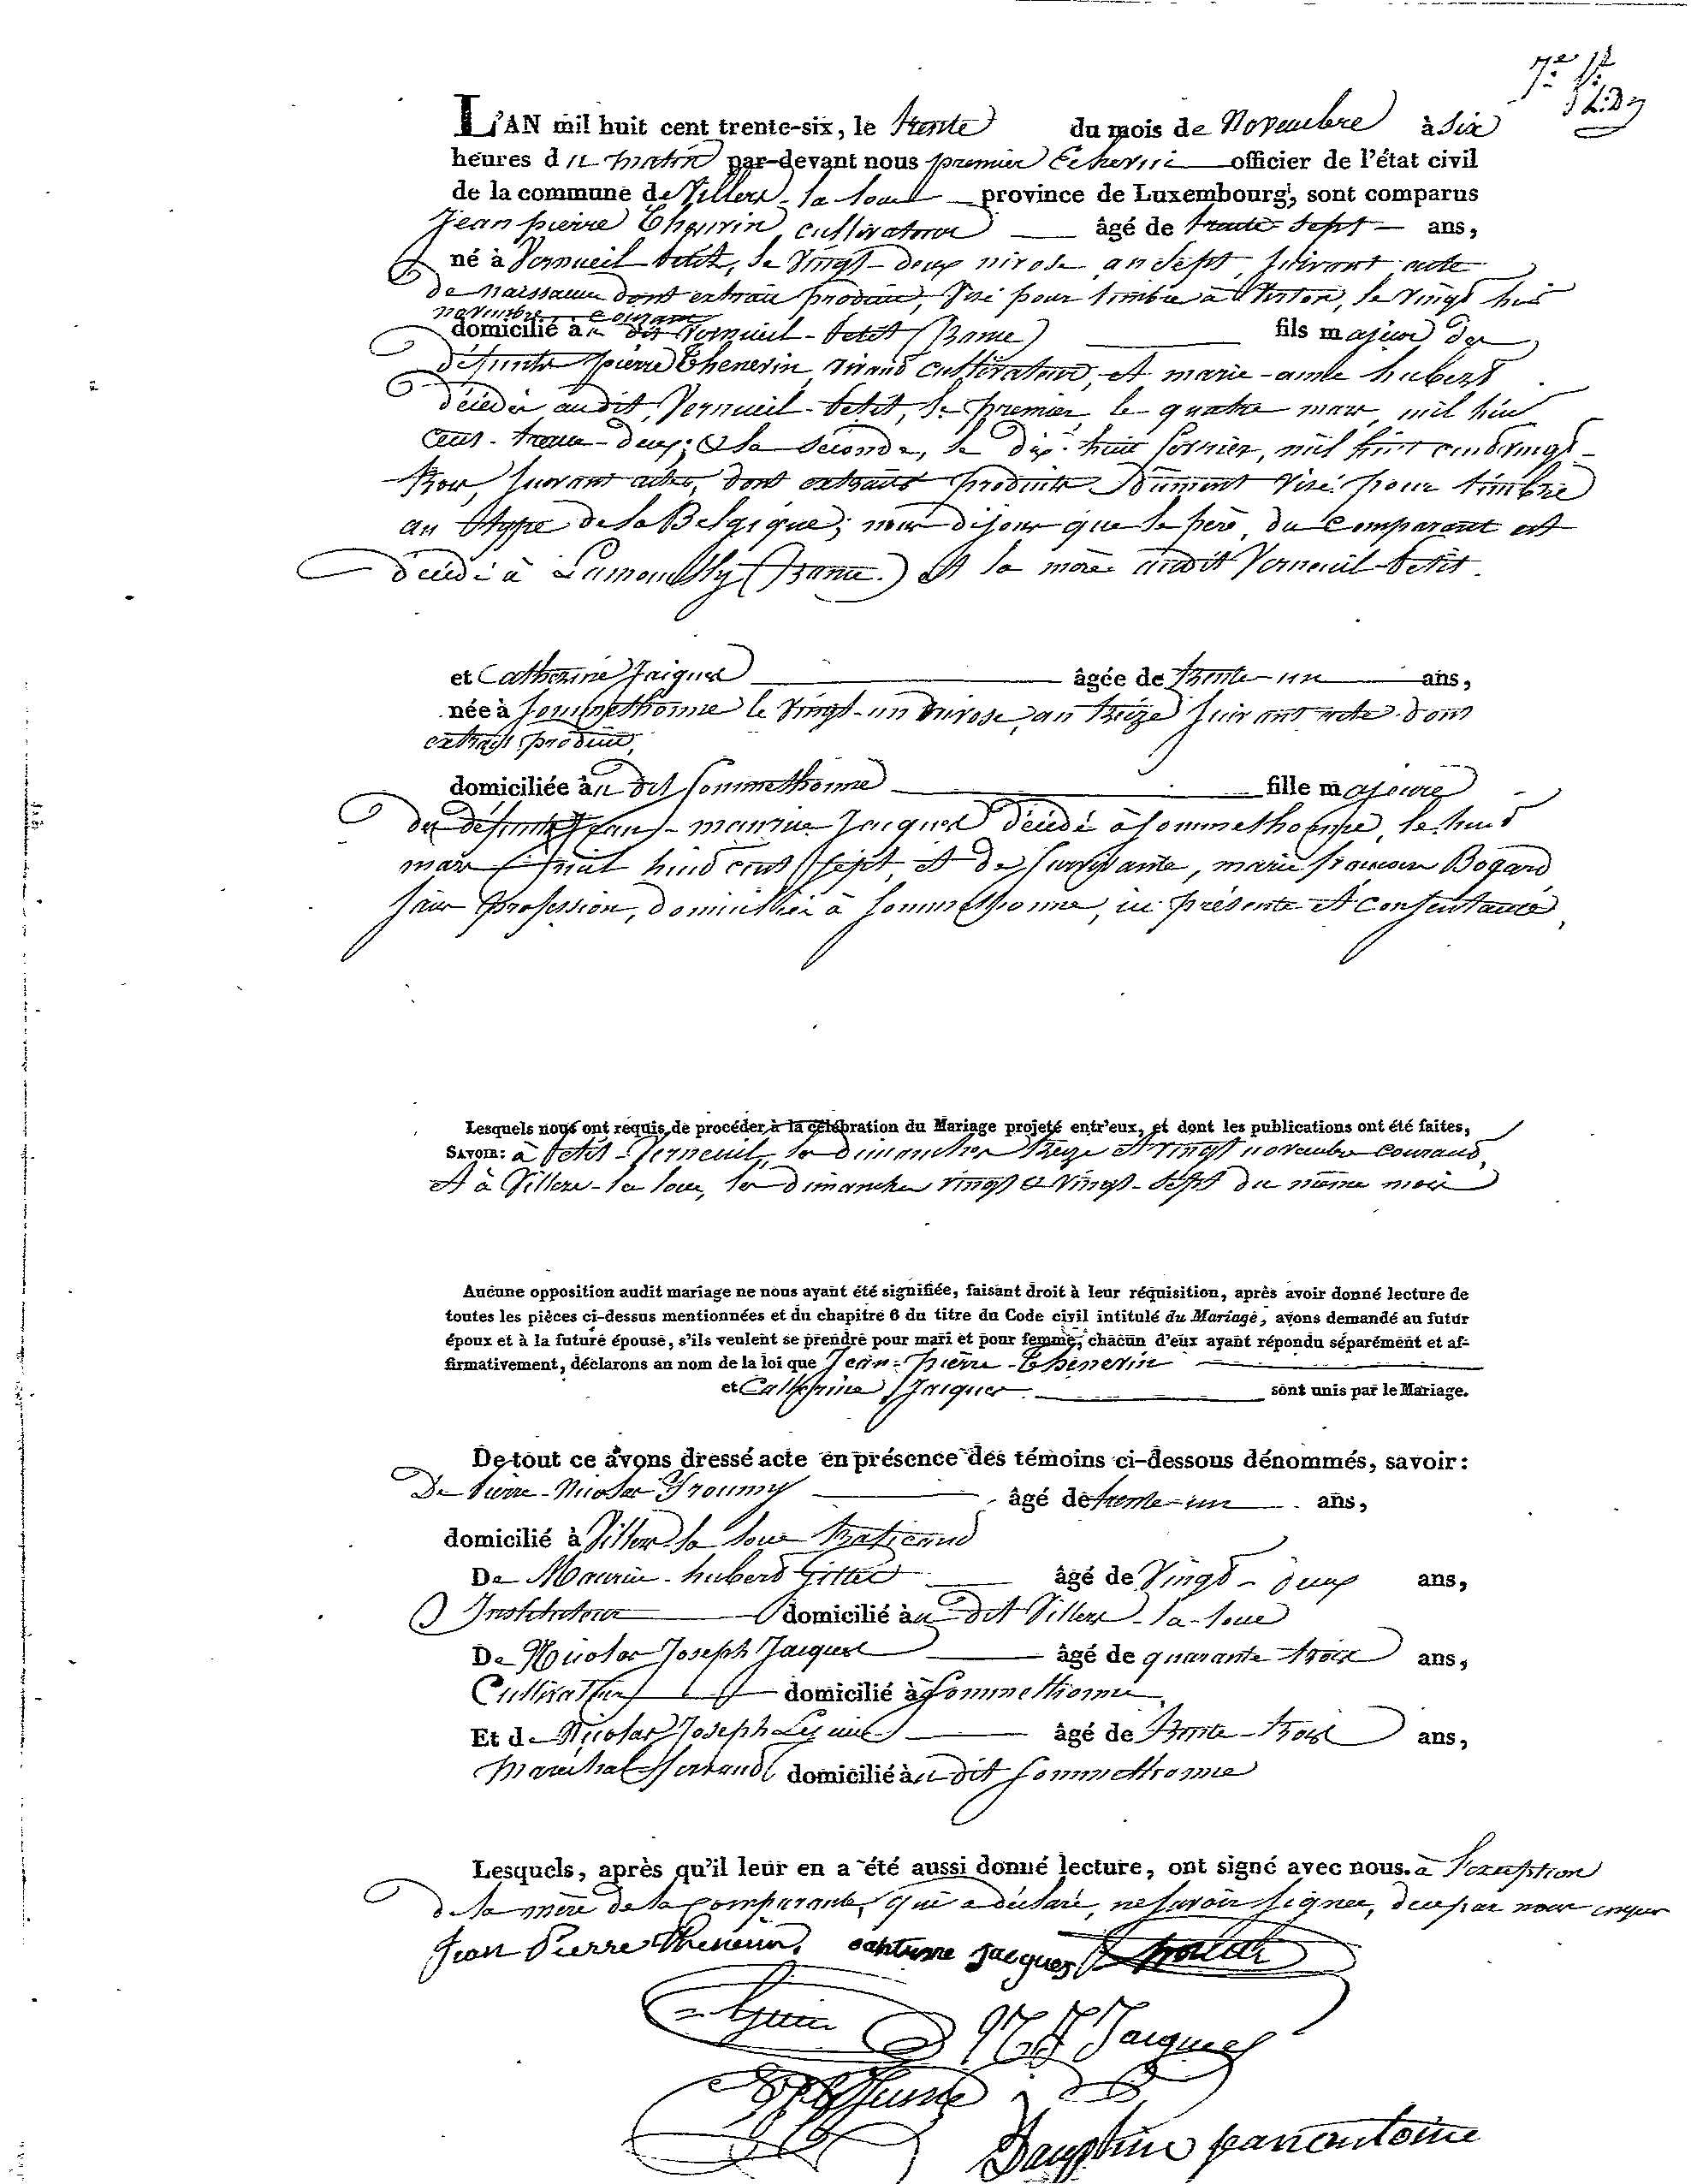 7e
L'AN mil huit cent trente-six, le trente du mois de Novembre à Six
heures du matin par-devant nous premier Echevin officier de l'état civil
de la commune de Villers-la-Loue province de Luxembourg, sont comparus
Jean pierre Thenerin cultivateur âgé de trente Sept ans,
né à Verneuil-Petit, le Vingt-deux nivose an Sept, suivant acte
de naissance dont extrait produit, Visé pour timbre à Virton, le Vingt huit
novembre courant
domicilié à u dit Verneuil-Petit (France) fils majeur de
défunts pierre Thenerin, vivant cultivateur, et marie-anne hubert
décédés audit Verneuil-Petit, le premier, le quatre mars mil huit
cent-trente-deux; & la Seconde, le dix-huit février, mil huit cent vingt-
trois, suivant actes, dont extraits produits dûment Visé pour timbre
au type de la Belgique; nous disons que le père du Comparant est
décédé à Lamouilly (France) et la mère audit Verneuil-Petit.
et Catherine Jacques âgée de trente-un ans,
née à Sommethonne le Vingt-un nivose, an treize suivant acte dont
extrait produit,
domiciliée à u dit Sommethonne fille majeure
de défunt Jean-maurice Jacques décédé à Sommethonne, le huit
mars mil huit cent sept, et de survivante, marie françoise Bogard
sans profession, domiciliée à Sommethonne, ici présente et consentante,
Lesquels nous ont requis de procéder à la célébration du Mariage projeté entr'eux, et dont les publications ont été faites,
SAVOIR: à Petit-Verneuil, les dimanches treize et vingt novembre courant,
et à Villers-la-loue, les dimanches vingt & vingt-sept du même mois
Aucune opposition audit mariage ne nous ayant été signifiée, faisant droit à leur réquisition, après avoir donné lecture de
toutes les pièces ci-dessus mentionnées et du chapitre 6 du titre du Code civil intitulé du Mariage, avons demandé au futur
époux et à la future épouse, s'ils veulent se prendre pour mari et pour femme; chacun d'eux ayant répondu séparément et af-
firmativement, déclarons au nom de la loi que Jean-pierre-Thenerin
et Catherine Jacques sont unis par le Mariage.
De tout ce avons dressé acte en présence des témoins ci-dessous dénommés, savoir:
De Pierre-Nicolas âgé de trente-un ans,
domicilié à Villers la loue
De Maurice-hubert âgé de Vingt-deux ans,
Instituteur domicilié à u dit Villers-la-loue
De Nicolas Joseph Jacques âgé de quarante trois ans,
Cultivateur domicilié à Sommethonne,
Et de Nicolas Joseph âgé de trente-trois ans,
maréchal-ferrant domicilié à u dit Sommethonne
Lesquels, après qu'il leur en a été aussi donné lecture, ont signé avec nous. à l'exception
de la mère de la Comparante, qui a déclaré, ne savoir signer, de ce par nous enquis
Jean Pierre Thenerin. Jacques
N J Jacques
Dauphin jean antoine